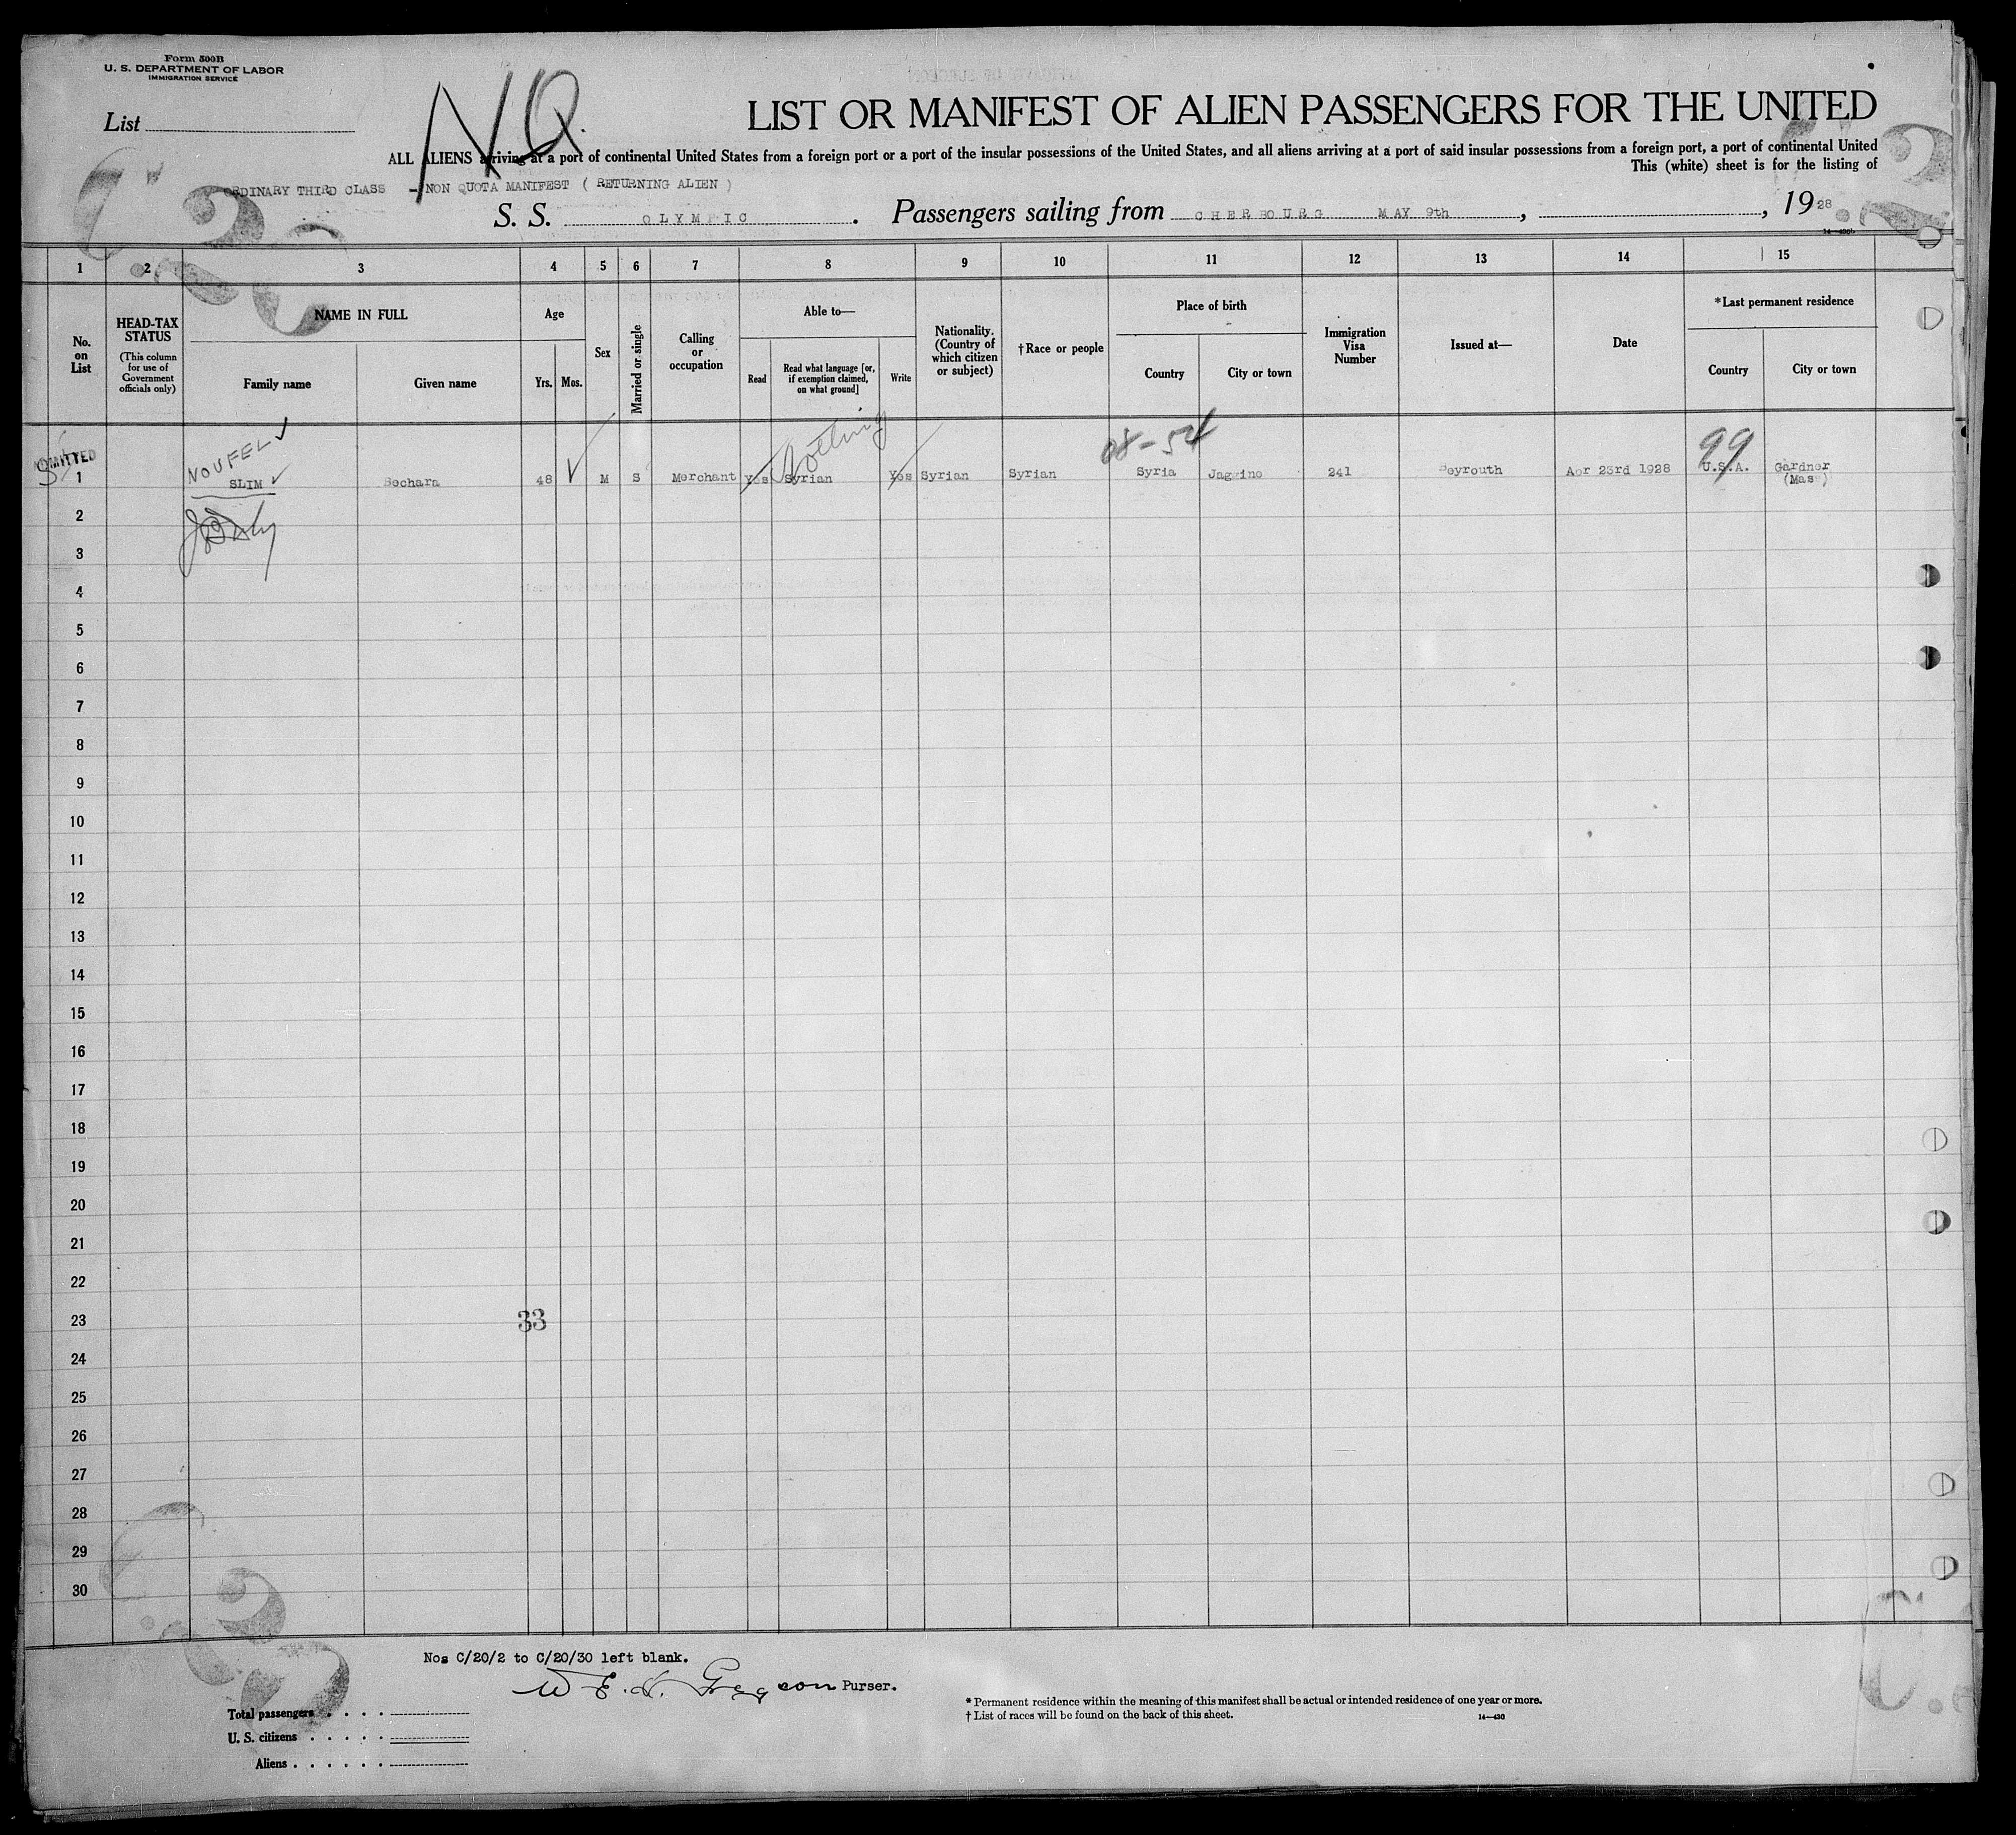 Form 500B
U. S. DEPARTMENT OF LABOR
IMMIGRATION SERVICE
NQ.
List
LIST OR MANIFEST OF ALIEN PASSENGERS FOR THE UNITED
ALL ALIENS arriving at a port of continental United States from a foreign port or a port of the insular possessions of the United States, and all aliens arriving at a port of said insular possessions from a foreign port, a port of continental United
This (white) sheet is for the listing of
ORDINARY THIRD CLASS - NON QUOTA MANIFEST ( RETURNING ALIEN )
S. S. OLYMPIC. Passengers sailing from CHERBOURG MAY 9th, , 1928
14—430
1 2 3 4 5 6 7 8 9 10 11 12 13 14 15
No. on List
HEAD-TAX STATUS
(This column for use of Government officials only)
NAME IN FULL
Family name
Given name
Age
Yrs.
Mos.
Sex
Married or single
Calling or occupation
Able to—
Read
Read what language [or, if exemption claimed, on what ground]
Write
Nationality. (Country of which citizen or subject)
†Race or people
Place of birth
Country
City or town
Immigration Visa Number
Issued at—
Date
*Last permanent residence
Country
City or town
ADMITTED
NOUFEL
08-54
99
1 SLIM Bechara 48 M S Merchant Yes Syrian Yes Syrian Syrian Syria 241 Beyrouth Apr 23rd 1928 U.S.A. Gardner
(Mas )
2
3
4
5
6
7
8
9
10
11
12
13
14
15
16
17
18
19
20
21
22
23
33
24
25
26
27
28
29
30
Nos C/20/2 to C/20/30 left blank.
Purser.
Total passengers
U. S. citizens
Aliens
* Permanent residence within the meaning of this manifest shall be actual or intended residence of one year or more.
† List of races will be found on the back of this sheet.
14—430